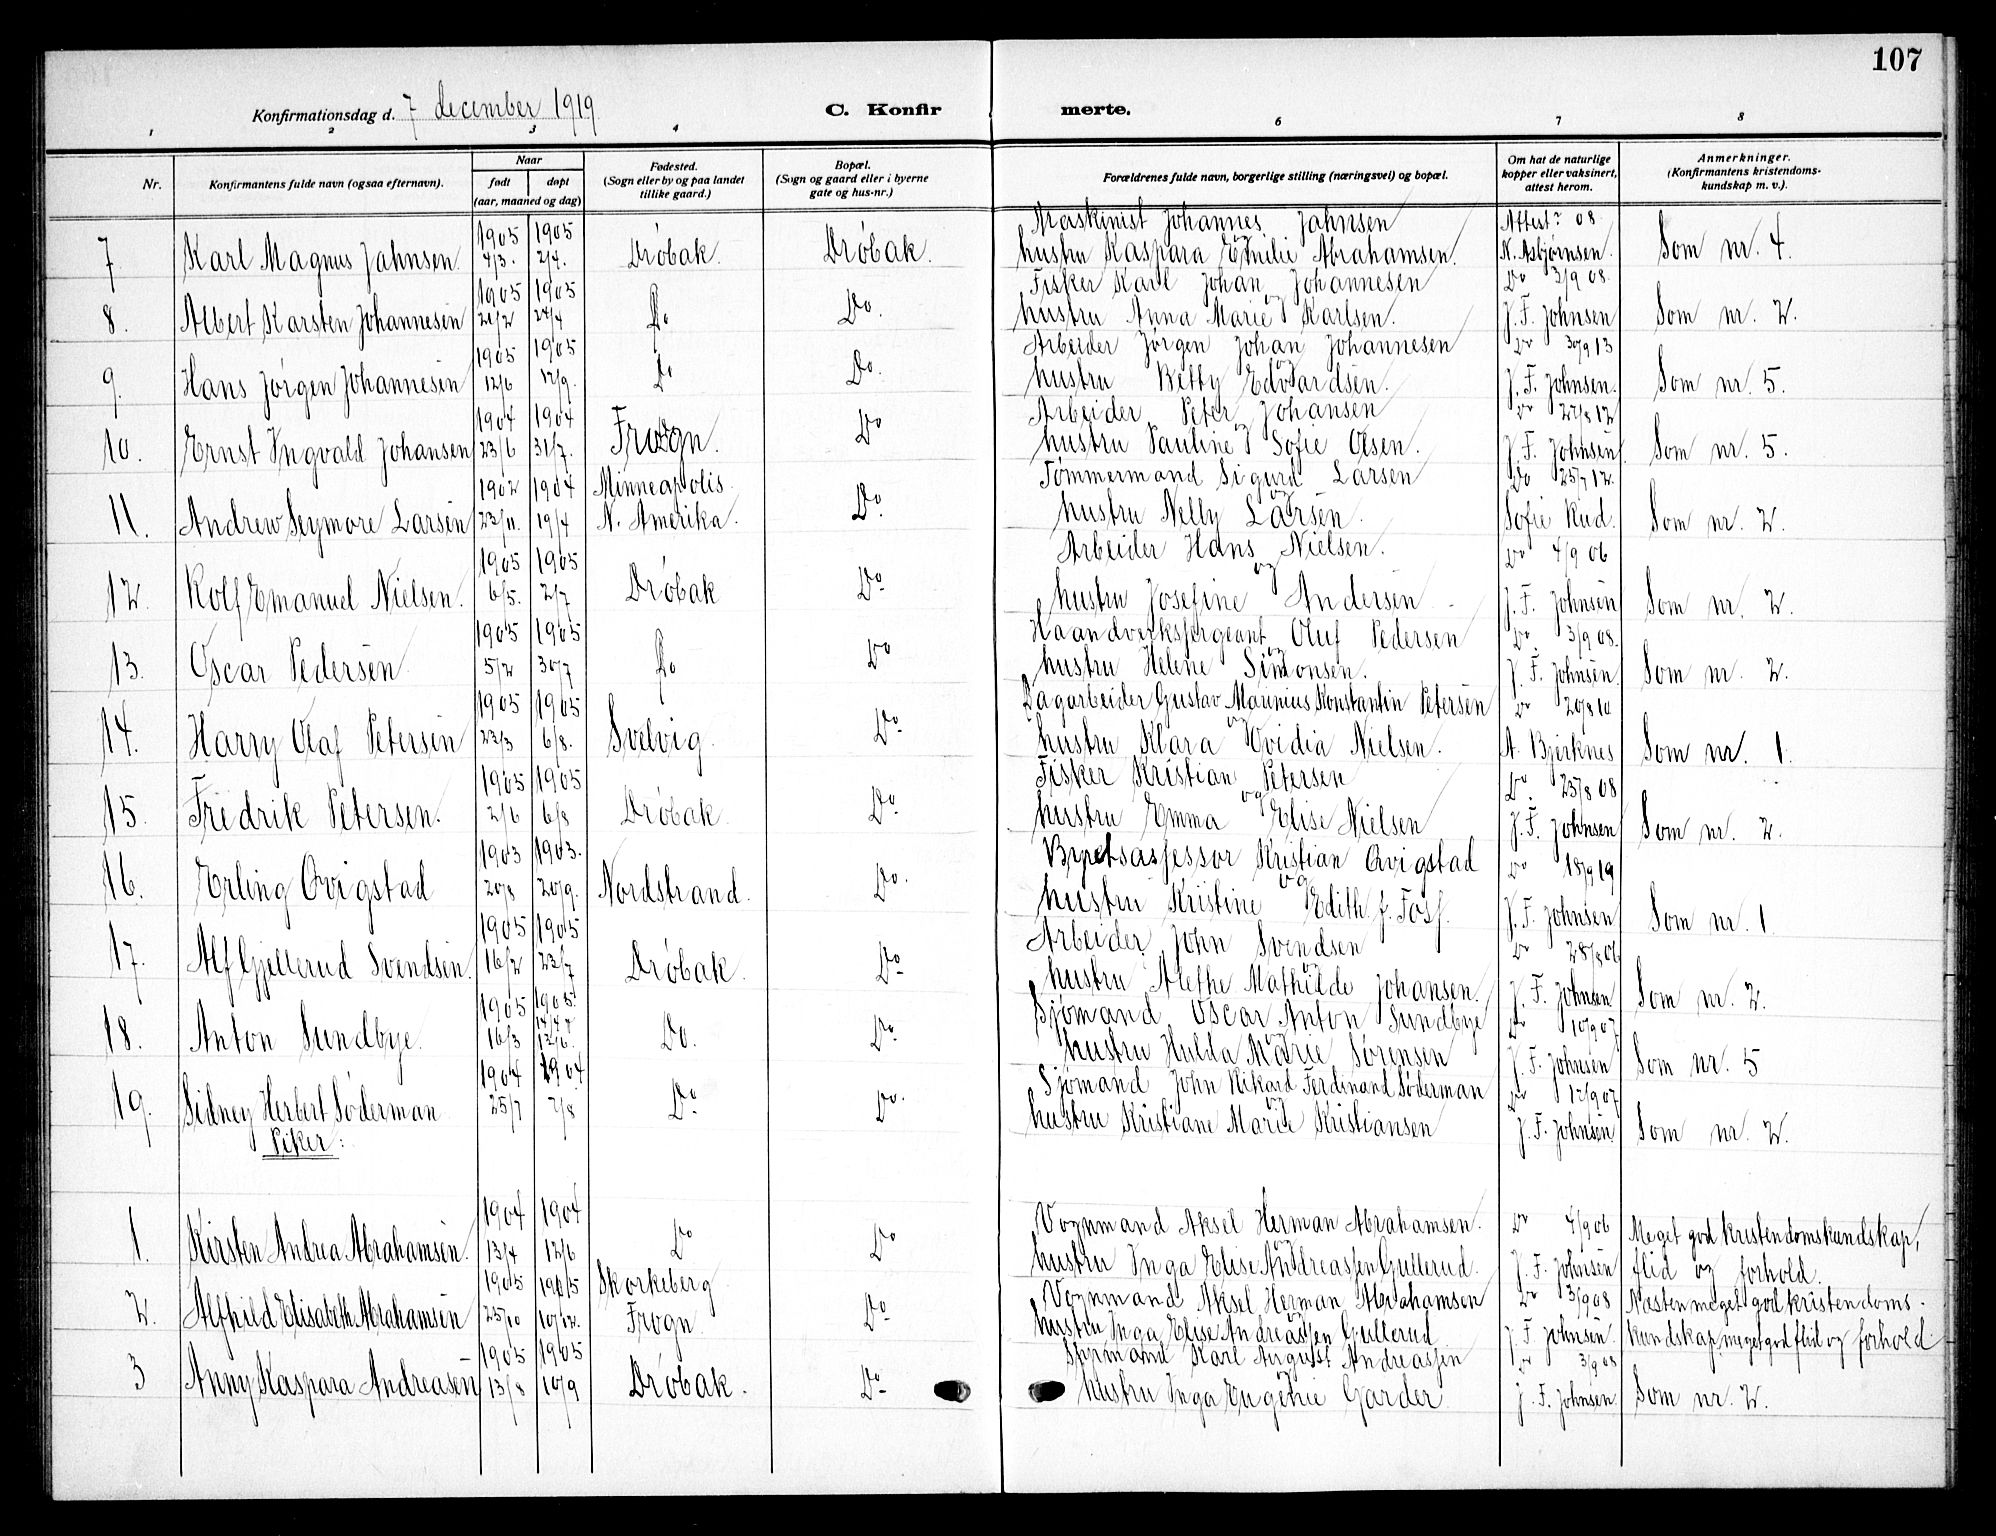 107
Konfirmationsdag d. 7 december 1919 C. Konfirmerte.
1 2 3 4 6 7 8
Nr. Konfirmantens fulde navn (ogsaa efternavn). Naar født døpt (aar, maaned og dag) Fødested. (Sogn eller by og paa landet tillike gaard.) Bopæl. (Sogn og gaard eller i byerne gate og hus-nr.) Forældrenes fulde navn, borgerlige stilling (næringsvei) og bopæl. Om hat de naturlige kopper eller vaksinert, attest herom. Anmerkninger. (Konfirmantens kristendoms-kundskap m. v.).
1905 1905 Maskinist Johannes Jahnsen Attest 08
7 Karl Magnus Jahnsen. 4/3. 2/4. Drøbak. Drøbak. og hustru Kaspara Emilie Abrahamsen. N. Asbjørnsen. Som nr. 4.
1905 1905 Fisker Karl Johan Johannesen Do 3/9 08.
8. Albert Karsten Johannesen 21/2 24/4 Do Do. og hustru Anna Marie Karlsen. J. F. Johnsen Som nr. 2.
1905 1905 Arbeider Jørgen Johan Johannesen Do 30/9 13
9. Hans Jørgen Johannesen 12/6 17/9. Do Do. og hustru Betty Edvardsen. J. F. Johnsen. Som nr. 5.
1904 1904 Arbeider Peter Johansen Do 27/8 12
10. Ernst Ingvald Johansen 23/6 31/7. Frogn. Do og hustru Pauline Sofie Olsen. J. F. Johnsen. Som nr. 5.
1902 1904 Minneapolis Tømmermand Sigurd Larsen Do 25/7 12.
11. Andrew Seymore Larsen 23/11. 19/4 N. Amerika. Do. og hustru Nelly Larsen. Sofie Rud. Som nr. 2.
1905 1905 Arbeider Hans Nielsen. Do 4/9 06
12. Rolf Emanuel Nielsen. 6/5. 2/7 Drøbak Do og hustru Josefine Andersen J. F. Johnsen Som nr. 2.
1905 1905 Haandverkssergeant Oluf Pedersen Do. 3/9 08.
13. Oscar Pedersen 5/2 30/7 Do Do og hustru Helene Simonsen. J. F. Johnsen. Som nr. 2.
1905 1905 Dagarbeider Gustav Marinius Konstantin Petersen Do 20/8 10
14. Harry Olaf Petersen 23/3 6/8. Svelvig. Do. og hustru Klara Ovidia Nielsen. A. Bjerknes Som nr. 1.
1905 1905 Fisker Kristian Petersen Do. 23/8 08
15. Fredrik Petersen. 2/6 6/8 Drøbak. Do. og hustru Emma Elise Nielsen J. F. Johnsen Som nr. 2.
1903 1903. Byretsassessor Kristian Qvigstad Do 18/9 19
16. Erling Qvigstad 20/8 20/9. Nordstrand. Do. og hustru Kristine Edith f. Foss. J. F. Johnsen Som nr. 1
1905 1905 Arbeider John Svendsen Do 28/8 06
17. Alf Gjellerud Svendsen. 16/2 23/7 Drøbak. Do og hustru Alethe Mathilde Johansen. J. F. Johnsen Som nr. 2.
1905 1905. Sjømand Oscar Anton Sundbye Do 10/9 07
18. Anton Sundbye. 16/3 12/6. Do. Do. og hustru Hulda Marie Sørensen J. F. Johnsen Som nr. 5
1904 1904 Sjømand John Rikard Ferdinand Søderman Do 12/9 07
19. Sidney Herbert Søderman 25/7 7/8 Do. Do. og hustru Kristiane Marie Kristiansen J. F. Johnsen Som nr. 2.
Piker:
1904 1904 Vognmand Aksel Herman Abrahamsen. Do 4/9 06 Meget god kristendomskundskap,
1. Kirsten Andrea Abrahamsen. 13/4 12/6 Do Do og hustru Inga Elise Andreassen Gullerud. J. F. Johnsen flid og forhold.
1905 1905 Skorkeberg Vognmand Aksel Herman Abrahamsen Do 3/9 08 Næsten meget god kristendoms-
2. Alfhild Elisabeth Abrahamsen 25/10 10/12. Frogn. Do. og hustru Inga Elise Andreassen Gullerud J. F. Johnsen. kundskap, meget god flid og forhold.
1905 1905 Sjømand Karl August Andreassen Do 3/9 08
3 Anny Kaspara Andreasen 13/8 10/9 Drøbak. Do. og hustru Inga Eugenie Garder J. F. Johnsen. Som nr. 2.